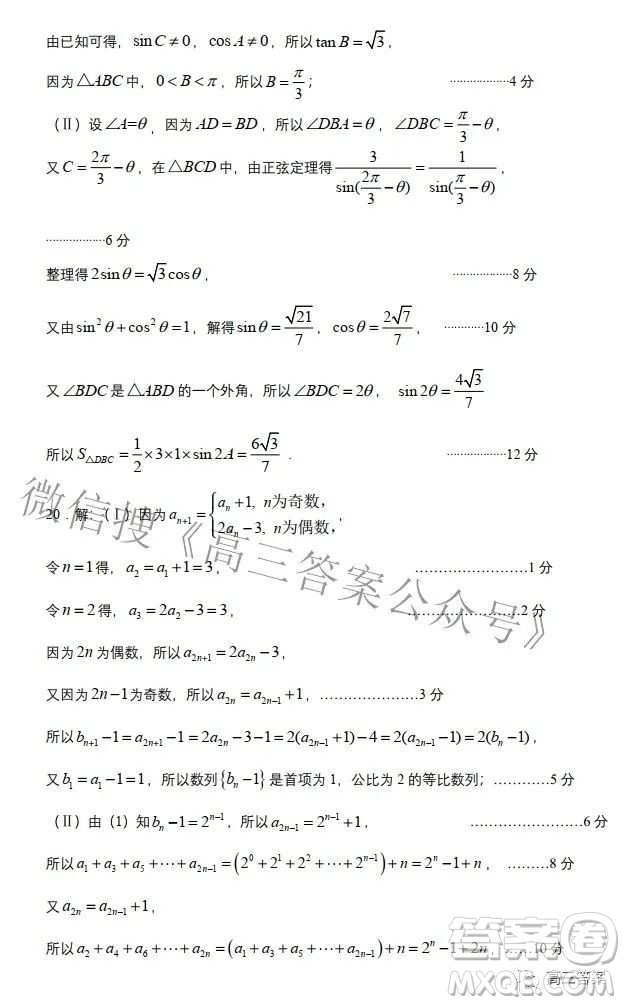 由已知可得，sin C ≠ 0，cos A ≠ 0，所以 tan B = √3，
因为 △ABC 中，0 < B < π，所以 B = π/3； ··················4 分
（Ⅱ）设 ∠A=θ，因为 AD = BD，所以 ∠DBA = θ，∠DBC = π/3 − θ，
又 C = 2π/3 − θ，在 △BCD 中，由正弦定理得 3/sin(2π/3 − θ) = 1/sin(π/3 − θ)，
··················6 分
整理得 2sin θ = √3 cos θ， ··················8 分
又由 sin² θ + cos² θ = 1，解得 sin θ = √21/7，cos θ = 2√7/7， ············10 分
又 ∠BDC 是 △ABD 的一个外角，所以 ∠BDC = 2θ， sin 2θ = 4√3/7
所以 S△DBC = 1/2 × 3 × 1 × sin 2A = 6√3/7 . ··················12 分
20．解：（Ⅰ）因为 aₙ₊₁ = { aₙ + 1, n为奇数， 2aₙ − 3, n为偶数，，
令 n = 1 得， a₂ = a₁ + 1 = 3， ……………………1 分
令 n = 2 得， a₃ = 2a₂ − 3 = 3； ……………………2 分
因为 2n 为偶数，所以 a₂ₙ₊₁ = 2a₂ₙ − 3，
又因为 2n − 1 为奇数，所以 a₂ₙ = a₂ₙ₋₁ + 1，…………………3 分
所以 bₙ₊₁ − 1 = a₂ₙ₊₁ − 1 = 2a₂ₙ − 3 − 1 = 2(a₂ₙ₋₁ + 1) − 4 = 2(a₂ₙ₋₁ − 1) = 2(bₙ − 1)，
又 b₁ = a₁ − 1 = 1，所以数列 {bₙ − 1} 是首项为 1，公比为 2 的等比数列；…………5 分
（Ⅱ）由（1）知 bₙ − 1 = 2ⁿ⁻¹，所以 a₂ₙ₋₁ = 2ⁿ⁻¹ + 1， ……………………6 分
所以 a₁ + a₃ + a₅ + ⋯ + a₂ₙ₋₁ = (2⁰ + 2¹ + 2² + ⋯ + 2ⁿ⁻¹) + n = 2ⁿ − 1 + n， ………8 分
又 a₂ₙ = a₂ₙ₋₁ + 1，
所以 a₂ + a₄ + a₆ + ⋯ + a₂ₙ = (a₁ + a₃ + a₅ + ⋯ + a₂ₙ₋₁) + n = 2ⁿ − 1 + 2n ……10 分
微信搜《高三答案公众号》
答案圈
高三答案
MXQE.COM